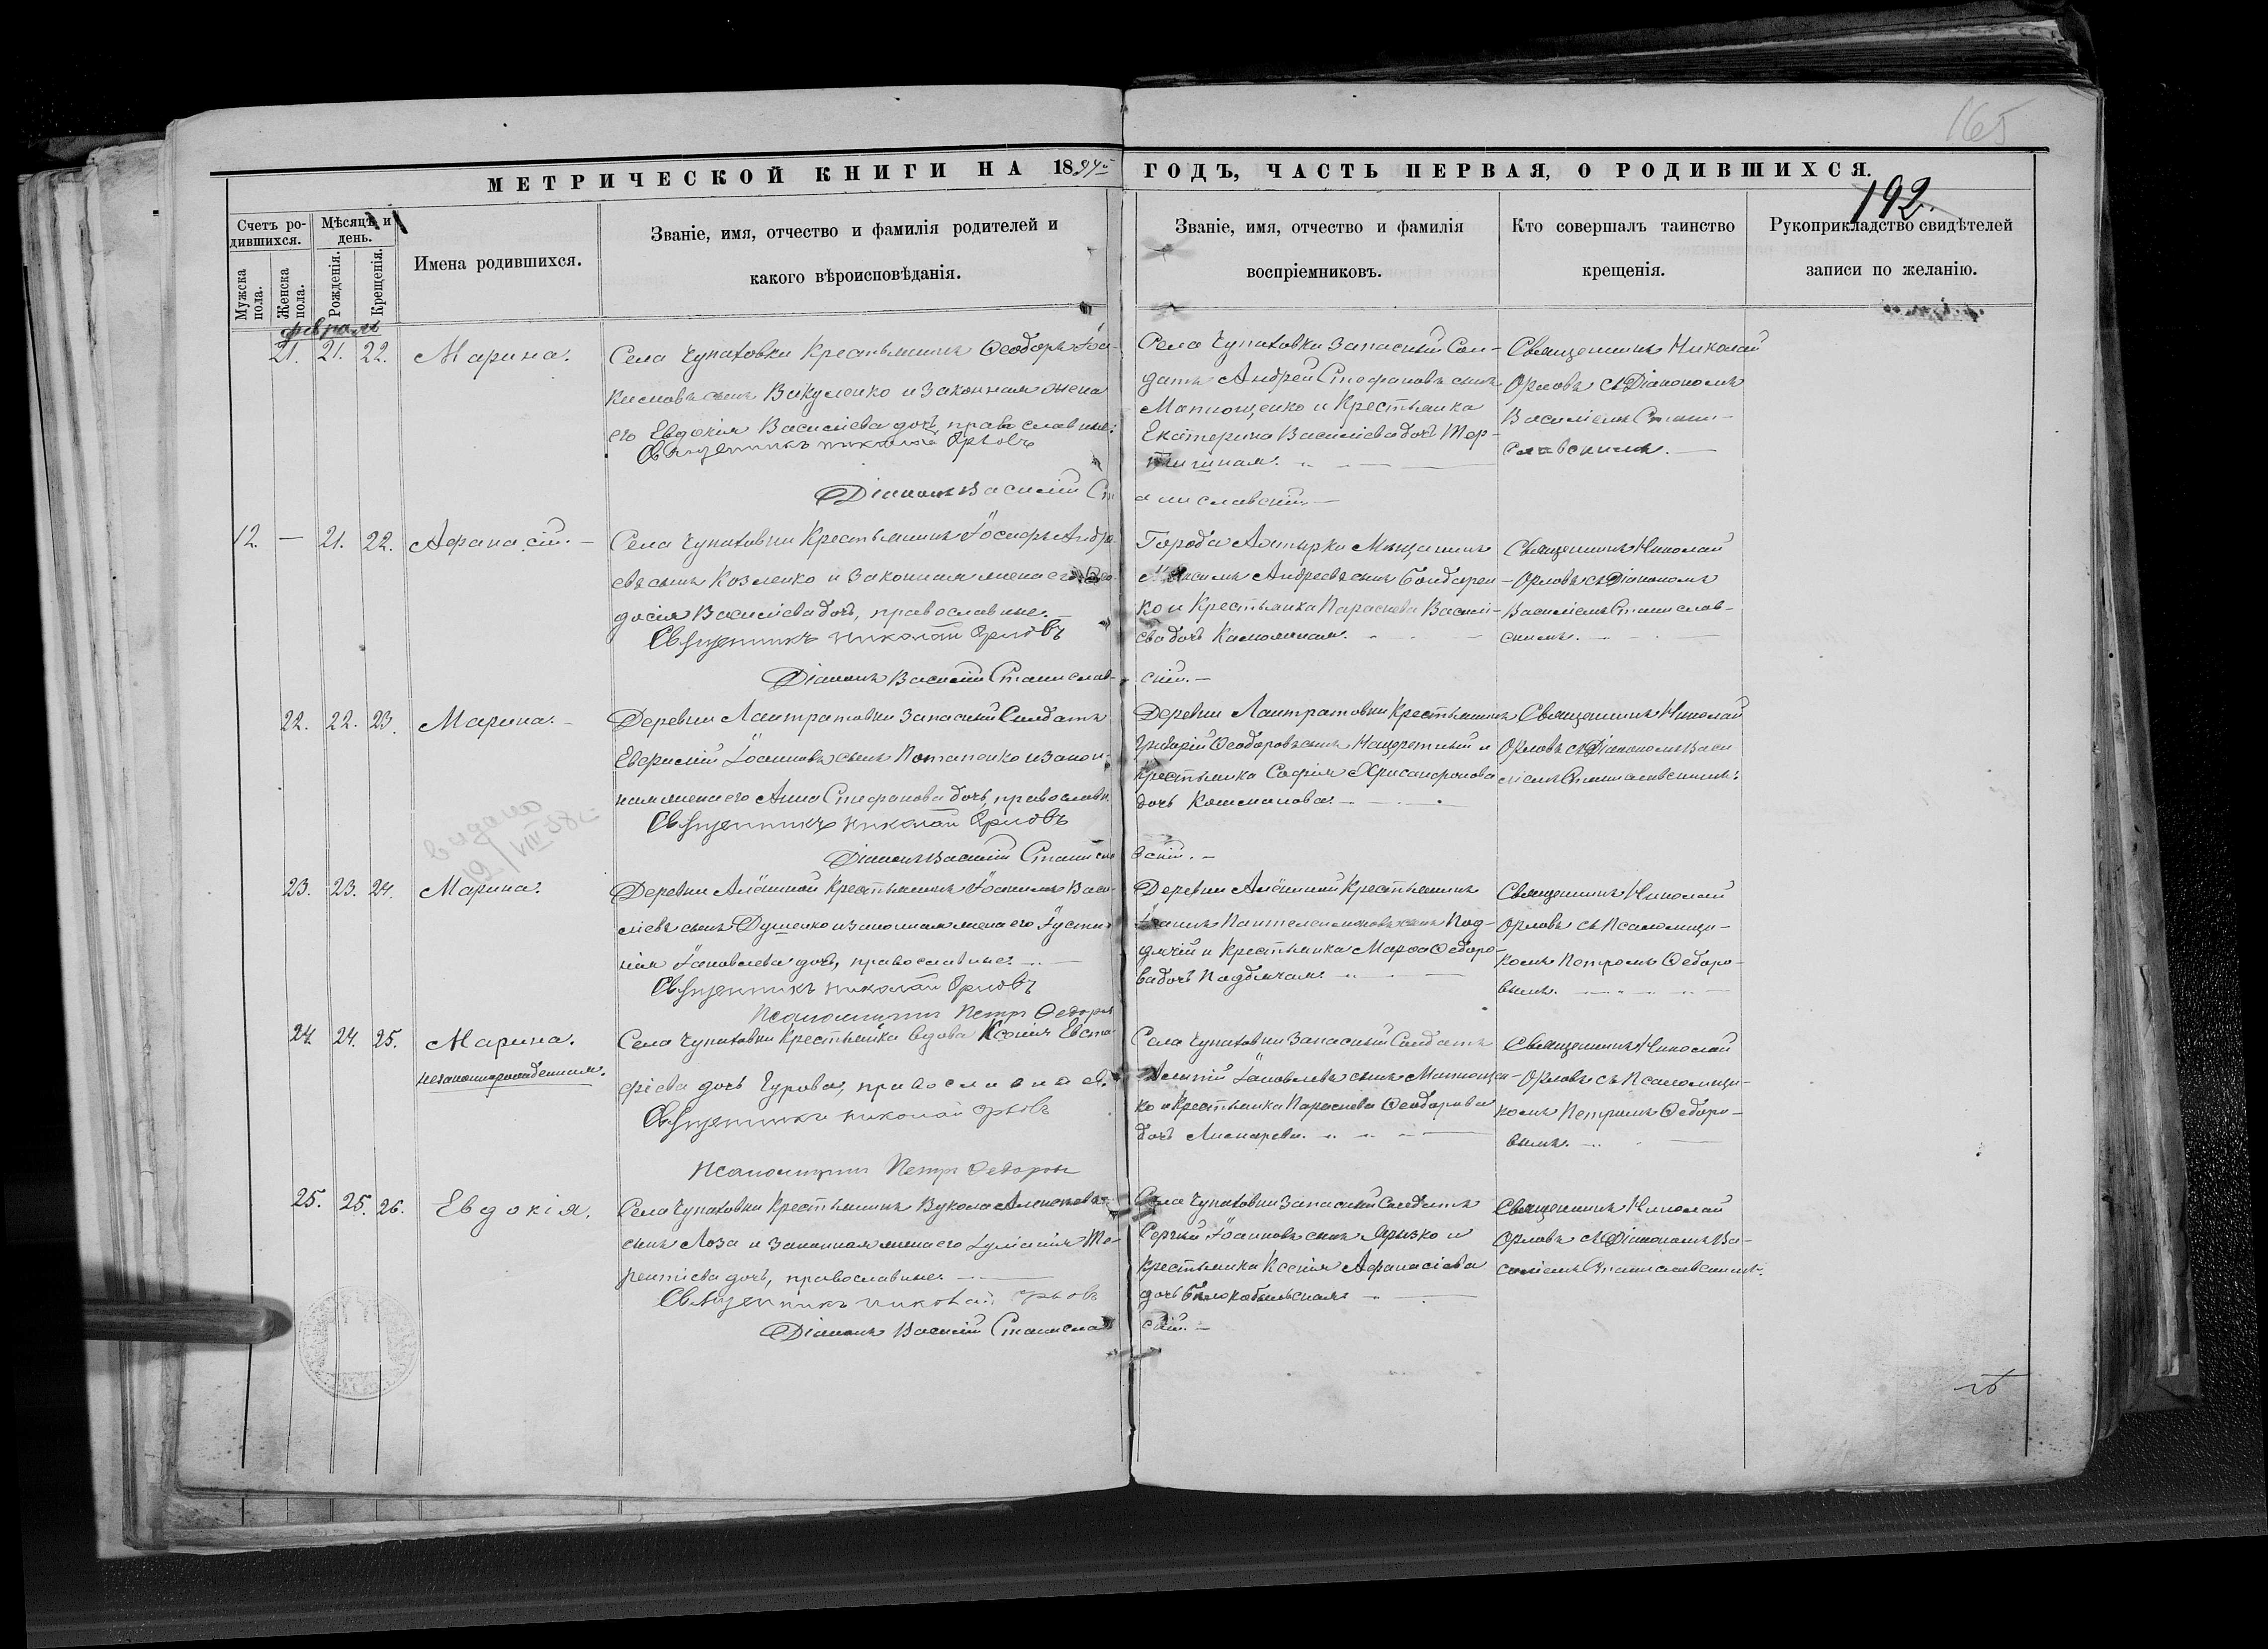 165
МЕТРИЧЕСКОЙ КНИГИ НА 1894 ГОДЪ, ЧАСТЬ ПЕРВАЯ, О РОДИВШИХСЯ.
192.
Счетъ родившихся.
Мѣсяцъ и день.
Мужска пола.
Женска пола.
Рожденія.
Крещенія.
Имена родившихся.
Званіе, имя, отчество и фамилія родителей и
какого вѣроисповѣданія.
Званіе, имя, отчество и фамилія
воспріемниковъ.
Кто совершалъ таинство
крещенія.
Рукоприкладство свидѣтелей
записи по желанію.
февраль
21. 21. 22. Марина.
Села Чупаховки Крестьянинъ Ѳеодоръ Іоа-
кимовъ сынъ Викуленко и законная жена
его Евдокія Василіева дочь, православные.
Священникъ Николай Орловъ
Діаконъ Василій Станиславскій.
Села Чупаховки запасный Сол-
датъ Андрей Стефановъ сынъ
Матющенко и Крестьянка
Екатерина Василіева дочь Тер-
Священникъ Николай
Орловъ съ Діакономъ
Василіемъ Стани-
славскимъ.
12. — 21. 22. Аѳанасій.
Села Чупаховки Крестьянинъ Іосифъ Андре-
евъ сынъ Козленко и законная жена его Ѳео-
досія Василіева дочь, православные.
Священникъ Николай Орловъ
Діаконъ Василій Станиславскій.
Города Ахтырки Мѣщанинъ
Андреевъ сынъ Бондарен-
ко и Крестьянка Параскева Василі-
ева дочь
Священникъ Николай
Орловъ съ Діакономъ
Василіемъ Станислав-
скимъ.
22. 22. 23. Марина.
Деревни Лантратовки запасный Солдатъ
Евфимій Іоанновъ сынъ Потапенко и закон-
ная жена его Анна Стефанова дочь, православн.
Священникъ Николай Орловъ
Діаконъ Василій Станиславскій.
Деревни Лантратовки Крестьянинъ
Григорій Ѳеодоровъ сынъ и
крестьянка Софія Хрисанфова
дочь
Священникъ Николай
Орловъ съ Діакономъ Васи
ліемъ Станиславскимъ.
видано
19/VIII 38
23. 23. 24. Марина.
Деревни Алёшной Крестьянинъ Іоакимъ Васи-
ліевъ сынъ Душенко и законная жена его Іусти-
нія Іаковлева дочь, православные.
Священникъ Николай Орловъ
Псаломщикъ Петръ Ѳедоровъ
Деревни Алёшной Крестьянинъ
Пантелеимоновъ сынъ Под-
дячій и Крестьянка Марѳа Ѳедоро-
ва дочь Поддячая.
Священникъ Николай
Орловъ съ Псаломщи-
комъ Петромъ Ѳедоро-
вымъ.
24. 24. 25. Марина.
незаконнорожденная.
Села Чупаховки Крестьянка вдова Ксенія Евста-
фіева дочь Гурова, православная.
Священникъ Николай Орловъ
Псаломщикъ Петръ Ѳедоровъ
Села Чупаховки запасный Солдатъ
Іаковлевъ сынъ Матюще-
ко и Крестьянка Параскева Ѳеодорова
дочь
Священникъ Николай
Орловъ съ Псаломщи-
комъ Петромъ Ѳедоро-
вымъ.
25. 25. 26. Евдокія.
Села Чупаховки Крестьянинъ Вукола Алексѣевъ
сынъ Лоза и законная жена его Іуліанія Те-
рентіева дочь, православные.
Священникъ Николай Орловъ
Діаконъ Василій Станиславскій.
Села Чупаховки запасный Солдатъ
Сергѣй Іоанновъ сынъ и
крестьянка Ксенія Аѳанасіева
дочь Бѣлокобыльская.
Священникъ Николай
Орловъ съ Діакономъ Ва-
силіемъ Станиславскимъ.